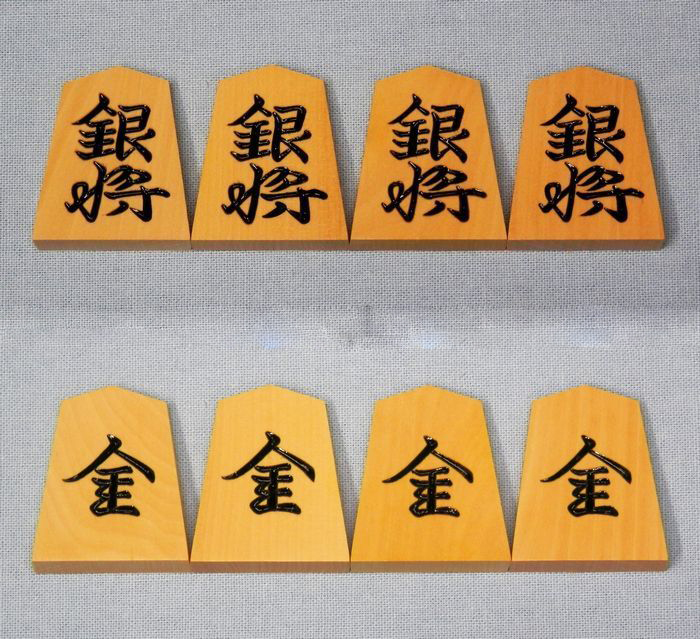 銀将 銀将 銀将 銀将
金 金 金 金